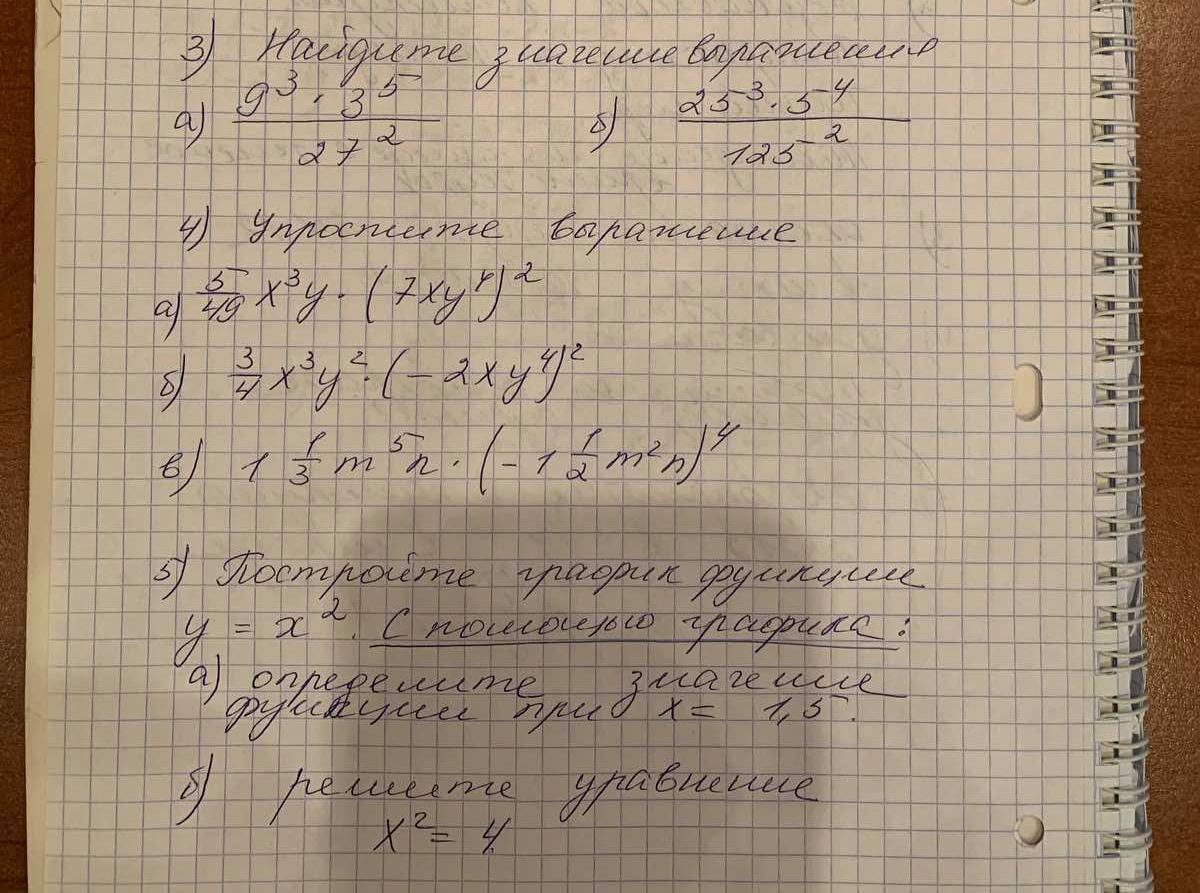 3) Найдите значение выражения
а) 9³ · 3⁵ / 27² б) 25³ · 5⁴ / 125²
4) Упростите выражение
а) 5/49 x³y · (7xy⁴)²
б) 3/4 x³y² · (-2xy⁴)²
в) 1 1/3 m⁵n · (-1 1/2 m²n)⁴
5) Постройте график функции
y = x². С помощью графика:
а) определите значение
функции при x = 1,5.
б) решите уравнение
x² = 4.